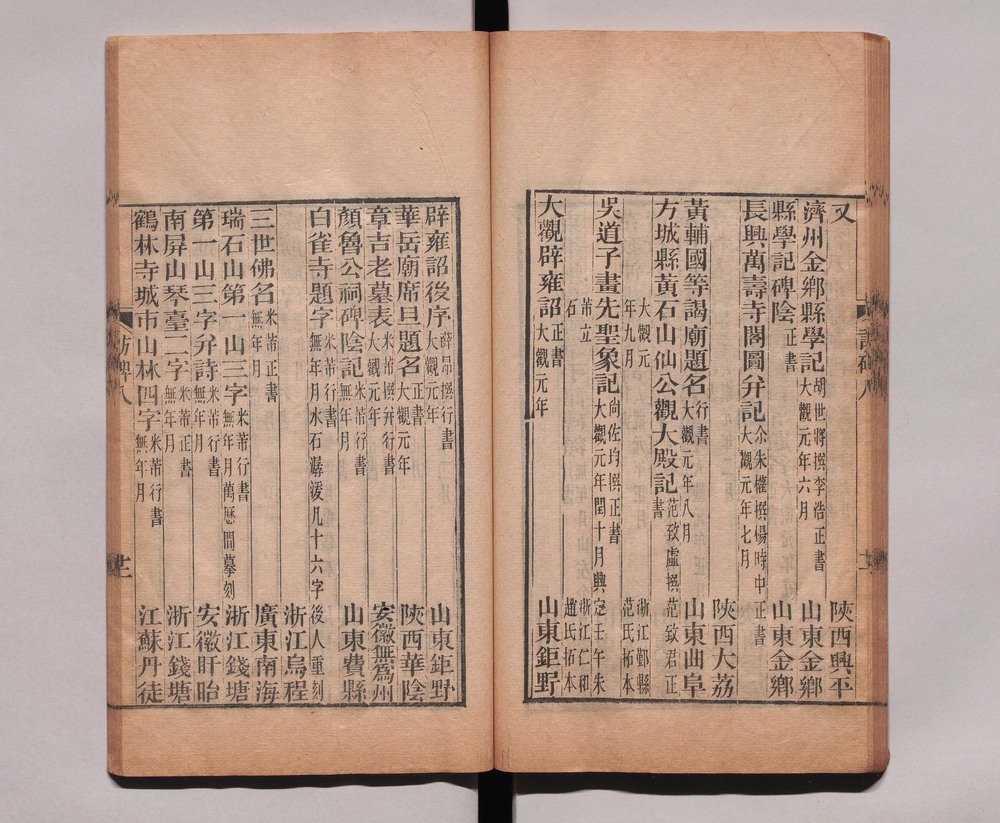 又 陝西興平
濟州金鄉縣學記 胡世將撰李浩正書 大觀元年六月 山東金鄉
縣學記碑陰 正書 山東金鄉
長興萬壽寺閣圖弁記 余朱權撰楊時中正書 大觀元年七月
陝西大荔
黃輔國等謁廟題名 行書 大觀元年八月 山東曲阜
方城縣黃石山仙公觀大殿記 范致虛撰 范致君正書
大觀元年九月 浙江鄞縣范氏拓本
吳道子畫先聖象記 尙佐均撰正書 大觀元年閏十月興定壬午朱
芾立石 浙江仁和趙氏拓本
大觀辟雍詔 正書 大觀元年 山東鉅野
辟雍詔後序 薛昂撰行書 大觀元年 山東鉅野
華岳廟席旦題名 正書 大觀元年 陝西華陰
章吉老墓表 米芾撰弁行書 大觀元年 安徽無爲州
顏魯公祠碑陰記 米芾撰行書 無年月 山東費縣
白雀寺題字 米芾行書 無年月水石潺湲几十六字後人重刻
浙江烏程
三世佛名 米芾正書 無年月 廣東南海
瑞石山第一山三字 米芾行書 無年月萬厯間摹刻 浙江錢塘
第一山三字弁詩 米芾行書 無年月 安徽盱眙
南屏山琴臺二字 米芾正書 無年月 浙江錢塘
鶴林寺城市山林四字 米芾行書 無年月 江蘇丹徒
訪碑八